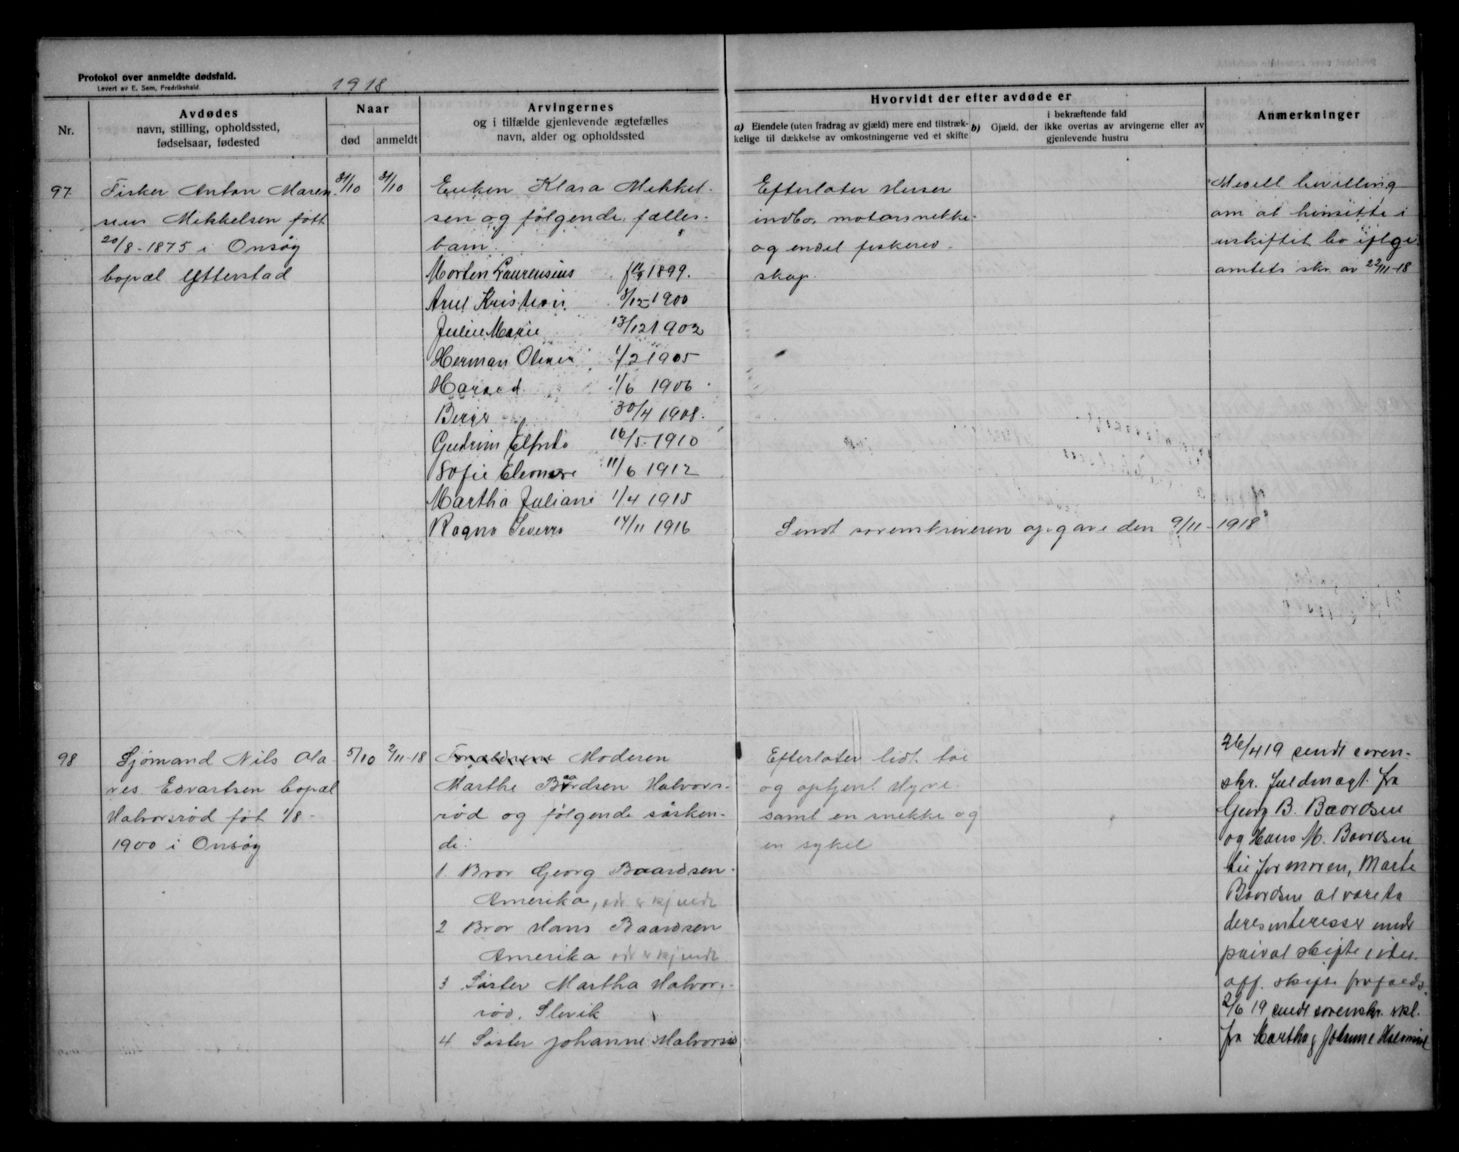 Protokol over anmeldte dødsfald.
Levert av E. Sem, Fredrikshald.
1918
Nr.
Avdødes
navn, stilling, opholdssted,
fødselsaar, fødested
Naar
død
anmeldt
Arvingernes
og i tilfælde gjenlevende ægtefælles
navn, alder og opholdssted
Hvorvidt der efter avdøde er
a) Eiendele (uten fradrag av gjæld) mere end tilstræk-
kelige til dækkelse av omkostningerne ved et skifte
b) Gjæld, der i bekræftende fald
ikke overtas av arvingerne eller av
gjenlevende hustru
Anmerkninger
97
Fisker Anton Maren
sius Mikkelsen født
20/8-1875 i Onsøy
bopæl Ytterstad
31/10
31/10
Enken Klara Mikkel-
sen og følgende fælles-
barn.
Morten Laurensius 1899.
Kristian 1900
Julie Marie 13/12 1902
Herman 1/2 1905
Harald 1/6 1906
Birger 30/4 1908.
Gudrun Elfrida 16/5-1910
Sofie Eleonore 11/6 1912
Martha Juliane 1/4 1915
Ragna 14/11 1916
Efterlater
indbo, motorsnekke
og endel fiskered-
skap.
Meddelt bevilling
om at hensitte i
uskiftet bo ifølge
amtets skr. av 22/11-18
Sendt sorenskriveren opgave den 9/11-1918
98
Sjømand Nils Ola-
ves Edvartsen bopæl
Halvorsrød føt 1/8-
1900 i Onsøy
5/10
2/11-18
Forældrene Moderen
Marthe Bårdsen Halvors-
rød og følgende søsken-
de:
1 Bror Georg Baardsen
Amerika,
2 Bror Hans Baardsen
Amerika
3 Søster Martha Halvors-
rød. Slevik
4 Søster Johanne Halvorsrø
Efterlater lidt tøi
og optjent hyre
samt en snekke og
en sykel
26/4 19 sendt soren-
skr. fuldmagt fra
Georg B. Baardsen
og Hans M. Baardsen
til formoren, Marte
Baardsen at vareta
deres interesser med
privat skifte
off. skifte
2/6 19 sendt sorenskr. skl.
fra Martha og Johanne